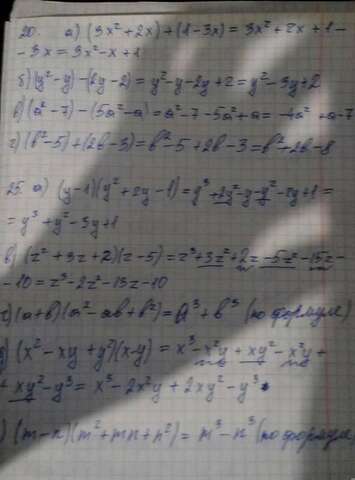 20. а) (3x² + 2x) + (1 - 3x) = 3x² + 2x + 1 -
- 3x = 3x² - x + 1
б) (y² - y) - (2y - 2) = y² - y - 2y + 2 = y² - 3y + 2
в) (a² - 7) - (5a² - a) = a² - 7 - 5a² + a = -4a² + a - 7
г) (b² - 5) + (2b - 3) = b² - 5 + 2b - 3 = b² + 2b - 8
25. а) (y - 1)(y² + 2y - 1) = y³ + 2y² - y - y² - 2y + 1 =
= y³ + y² - 3y + 1
в) (z² + 3z + 2)(z - 5) = z³ + 3z² + 2z - 5z² - 15z -
- 10 = z³ - 2z² - 13z - 10
г) (a + b)(a² - ab + b²) = a³ + b³ (по формуле)
д) (x² - xy + y²)(x - y) = x³ - x²y + xy² - x²y +
+ xy² - y³ = x³ - 2x²y + 2xy² - y³
) (m - n)(m² + mn + n²) = m³ - n³ (по формул